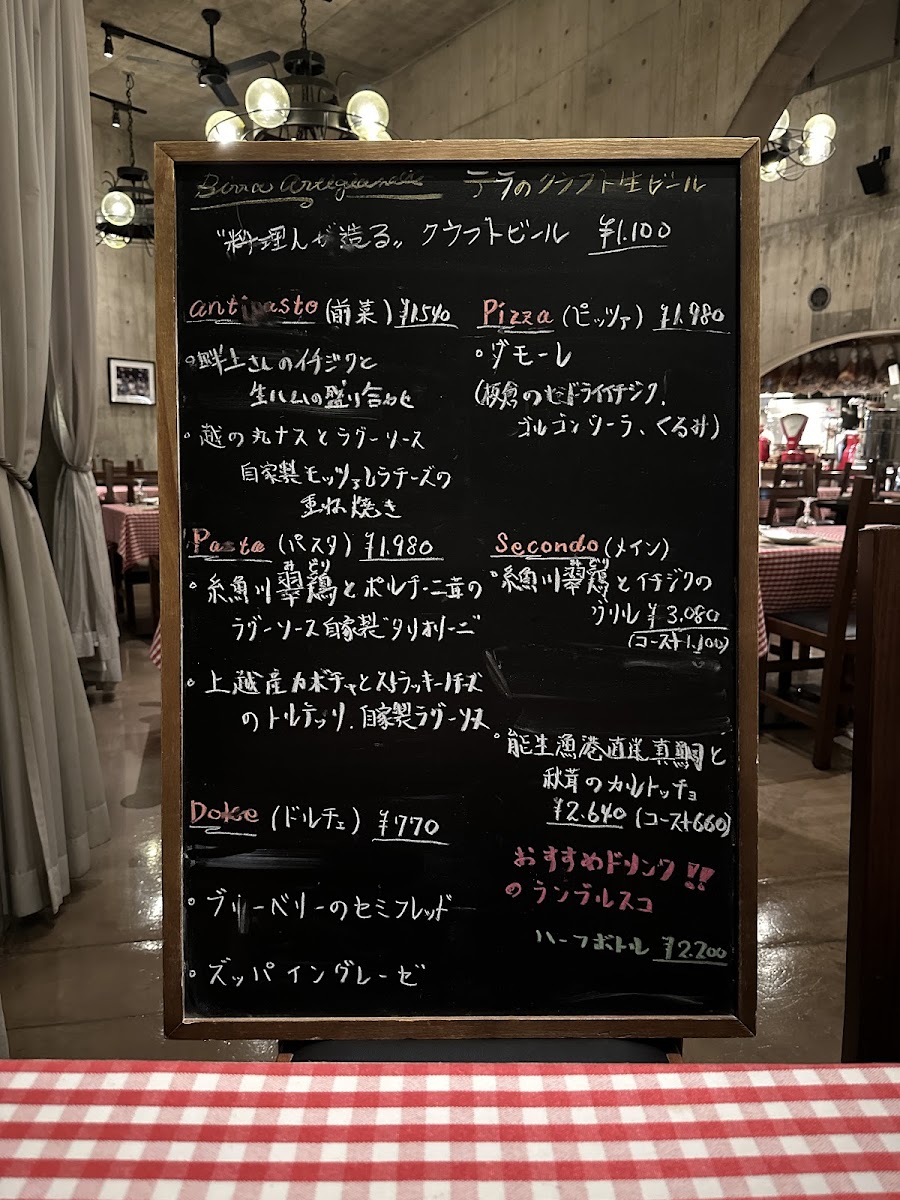 Birra Artigianale テラのクラフト生ビール
"料理人が造る" クラフトビール ¥1.100
antipasto (前菜) ¥1.540
・畔上さんのイチジクと
生ハムの盛り合わせ
・越の丸ナスとラグーソース
自家製モッツァレラチーズの
重ね焼き
Pasta (パスタ) ¥1.980
みどり
・糸魚川翠鶏とポルチーニ茸の
ラグーソース自家製タリオリーニ
・上越産カボチャとストラッキーノチーズ
のトルテッリ.自家製ラグーソース
Dolce (ドルチェ) ¥770
・ブルーベリーのセミフレッド
・ズッパイングレーゼ
Pizza (ピッツァ) ¥1.980
・ダモーレ
(板倉のセミドライイチジク、
ゴルゴンゾーラ、くるみ)
Secondo (メイン)
みどり
・糸魚川翠鶏とイチジクの
グリル ¥3.080
(コース+1.100)
・能生漁港直送真鯛と
秋茸のカルトッチョ
¥2.640 (コース+660)
おすすめドリンク!!
・ランブルスコ
ハーフボトル ¥2.200